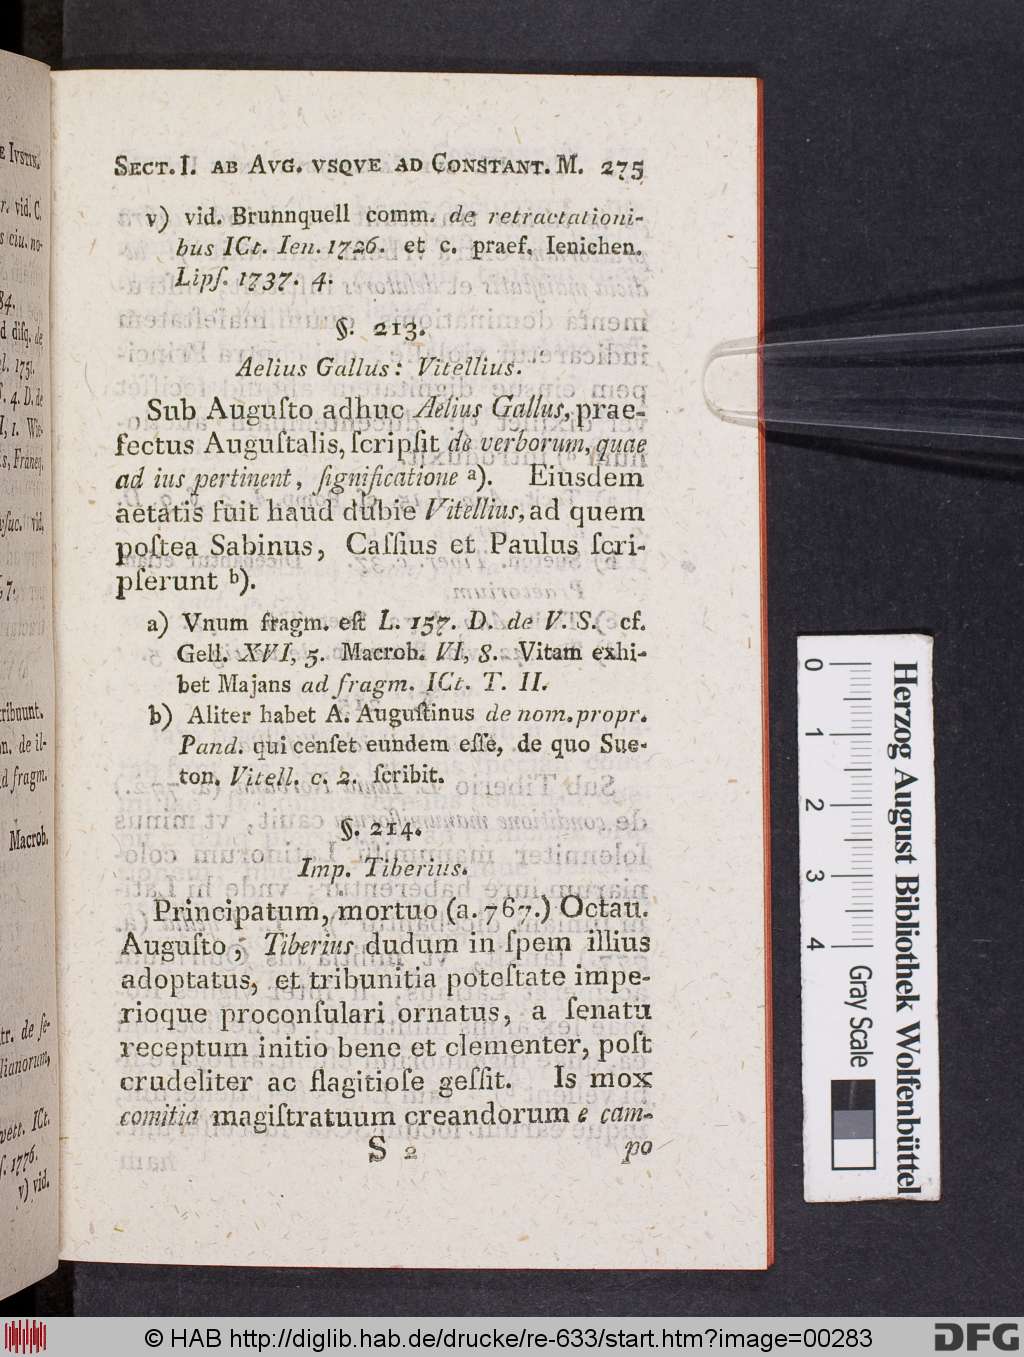 SECT. I. AB AVG. VSQVE AD CONSTANT. M. 275
v) vid. Brunnquell comm. de retractationi-
bus ICt. Ien. 1726. et c. praef. Ienichen.
Lipſ. 1737. 4.
§. 213.
Aelius Gallus: Vitellius.
Sub Auguſto adhuc Aelius Gallus, prae-
fectus Auguſtalis, ſcripſit de verborum, quae
ad ius pertinent, ſignificatione a). Eiusdem
aetatis fuit haud dubie Vitellius, ad quem
poſtea Sabinus, Caſſius et Paulus ſcri-
pſerunt b).
a) Vnum fragm. eſt L. 157. D. de V. S. cf.
Gell. XVI, 5. Macrob. VI, 8. Vitam exhi-
bet Majans ad fragm. ICt. T. II.
b) Aliter habet A. Auguſtinus de nom. propr.
Pand. qui cenſet eundem eſſe, de quo Sue-
ton. Vitell. c. 2. ſcribit.
§. 214.
Imp. Tiberius.
Principatum, mortuo (a. 767.) Octau.
Auguſto, Tiberius dudum in ſpem illius
adoptatus, et tribunitia poteſtate impe-
rioque proconſulari ornatus, a ſenatu
receptum initio bene et clementer, poſt
crudeliter ac flagitioſe geſſit. Is mox
comitia magiſtratuum creandorum e cam-
S 2 po
E IVSTIN.
r. vid. C.
s ciu. no-
84.
d diſq. de
l. 1751.
. 4. D. de
I, 1. Wie-
s, Franeq.
vid.
7.
tribuunt.
n. de il-
d fragm.
Macrob.
tr. de ſe-
lianorum,
vett. ICt.
ſ. 1776.
v) vid.
0 1 2 3 4
Gray Scale
Herzog August Bibliothek Wolfenbüttel
© HAB http://diglib.hab.de/drucke/re-633/start.htm?image=00283
DFG